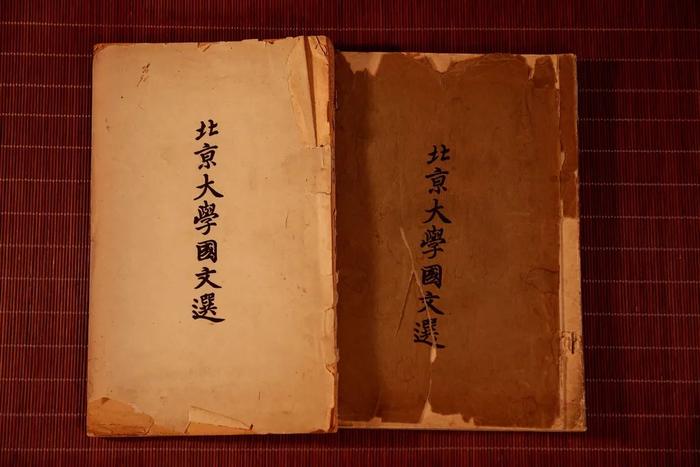 北亰大學國文選
北亰大學國文選